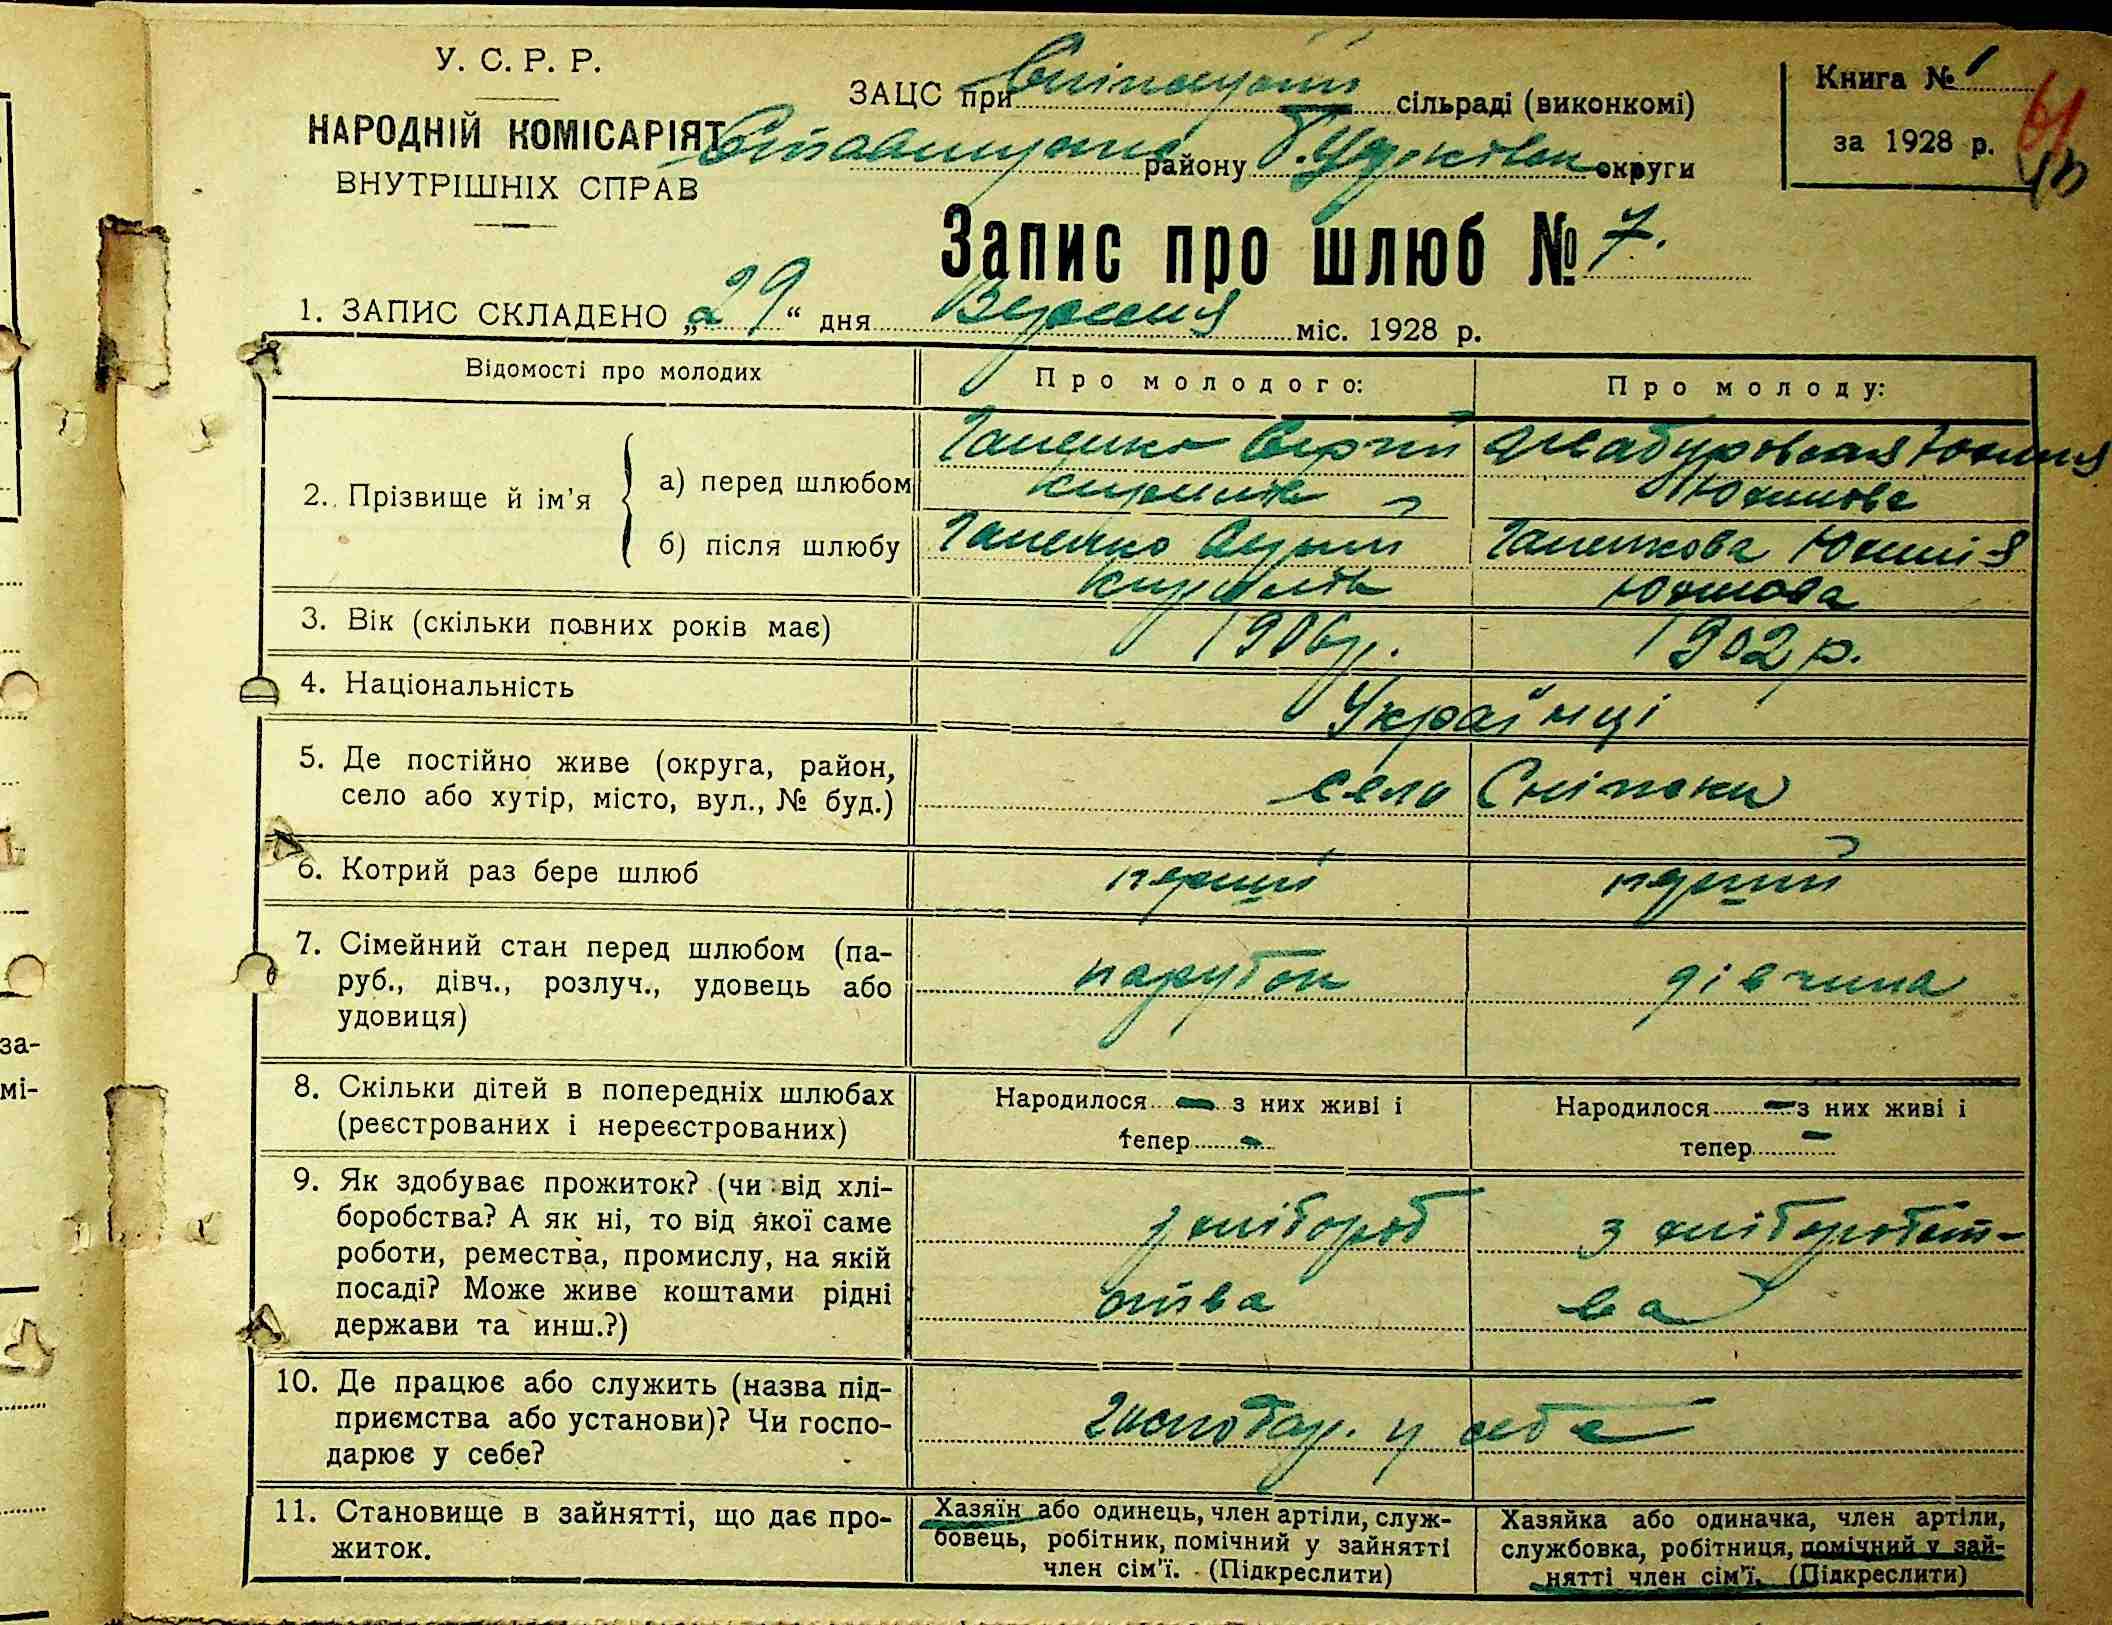 У. С. Р. Р.
НАРОДНІЙ КОМІСАРІЯТ
ВНУТРІШНІХ СПРАВ
ЗАЦС при сільраді (виконкомі)
району Б.Церківської округи
Книга № 1
за 1928 р.
Запис про шлюб № 7.
1. ЗАПИС СКЛАДЕНО „29“ дня Вересня міс. 1928 р.
Відомості про молодих
Про молодого:
Про молоду:
2. Прізвище й ім’я
а) перед шлюбом
Гапенко Сергій
Кирилів
Юхимова
б) після шлюбу
Гапенко Сергій
Кирилів
Гапенкова Юхимія
Юхимова
3. Вік (скільки повних років має)
1906 р.
1902 р.
4. Національність
Українці
5. Де постійно живе (округа, район,
село або хутір, місто, вул., № буд.)
село Сніжки
6. Котрий раз бере шлюб
перший
перший
7. Сімейний стан перед шлюбом (па-
руб., дівч., розлуч., удовець або
удовиця)
парубок
дівчина
8. Скільки дітей в попередніх шлюбах
(реєстрованих і нереєстрованих)
Народилося - з них живі і
тепер -
Народилося - з них живі і
тепер -
9. Як здобуває прожиток? (чи від хлі-
боробства? А як ні, то від якої саме
роботи, ремества, промислу, на якій
посаді? Може живе коштами рідні
держави та инш.?)
з хлібороб
ства
з хліборобст-
ва
10. Де працює або служить (назва під-
приємства або установи)? Чи госпо-
дарює у себе?
господар. у себе
11. Становище в зайнятті, що дає про-
житок.
Хазяїн або одинець, член артіли, служ-
бовець, робітник, помічний у зайнятті
член сім’ї. (Підкреслити)
Хазяйка або одиначка, член артіли,
службовка, робітниця, помічний у зай-
нятті член сім’ї. (Підкреслити)